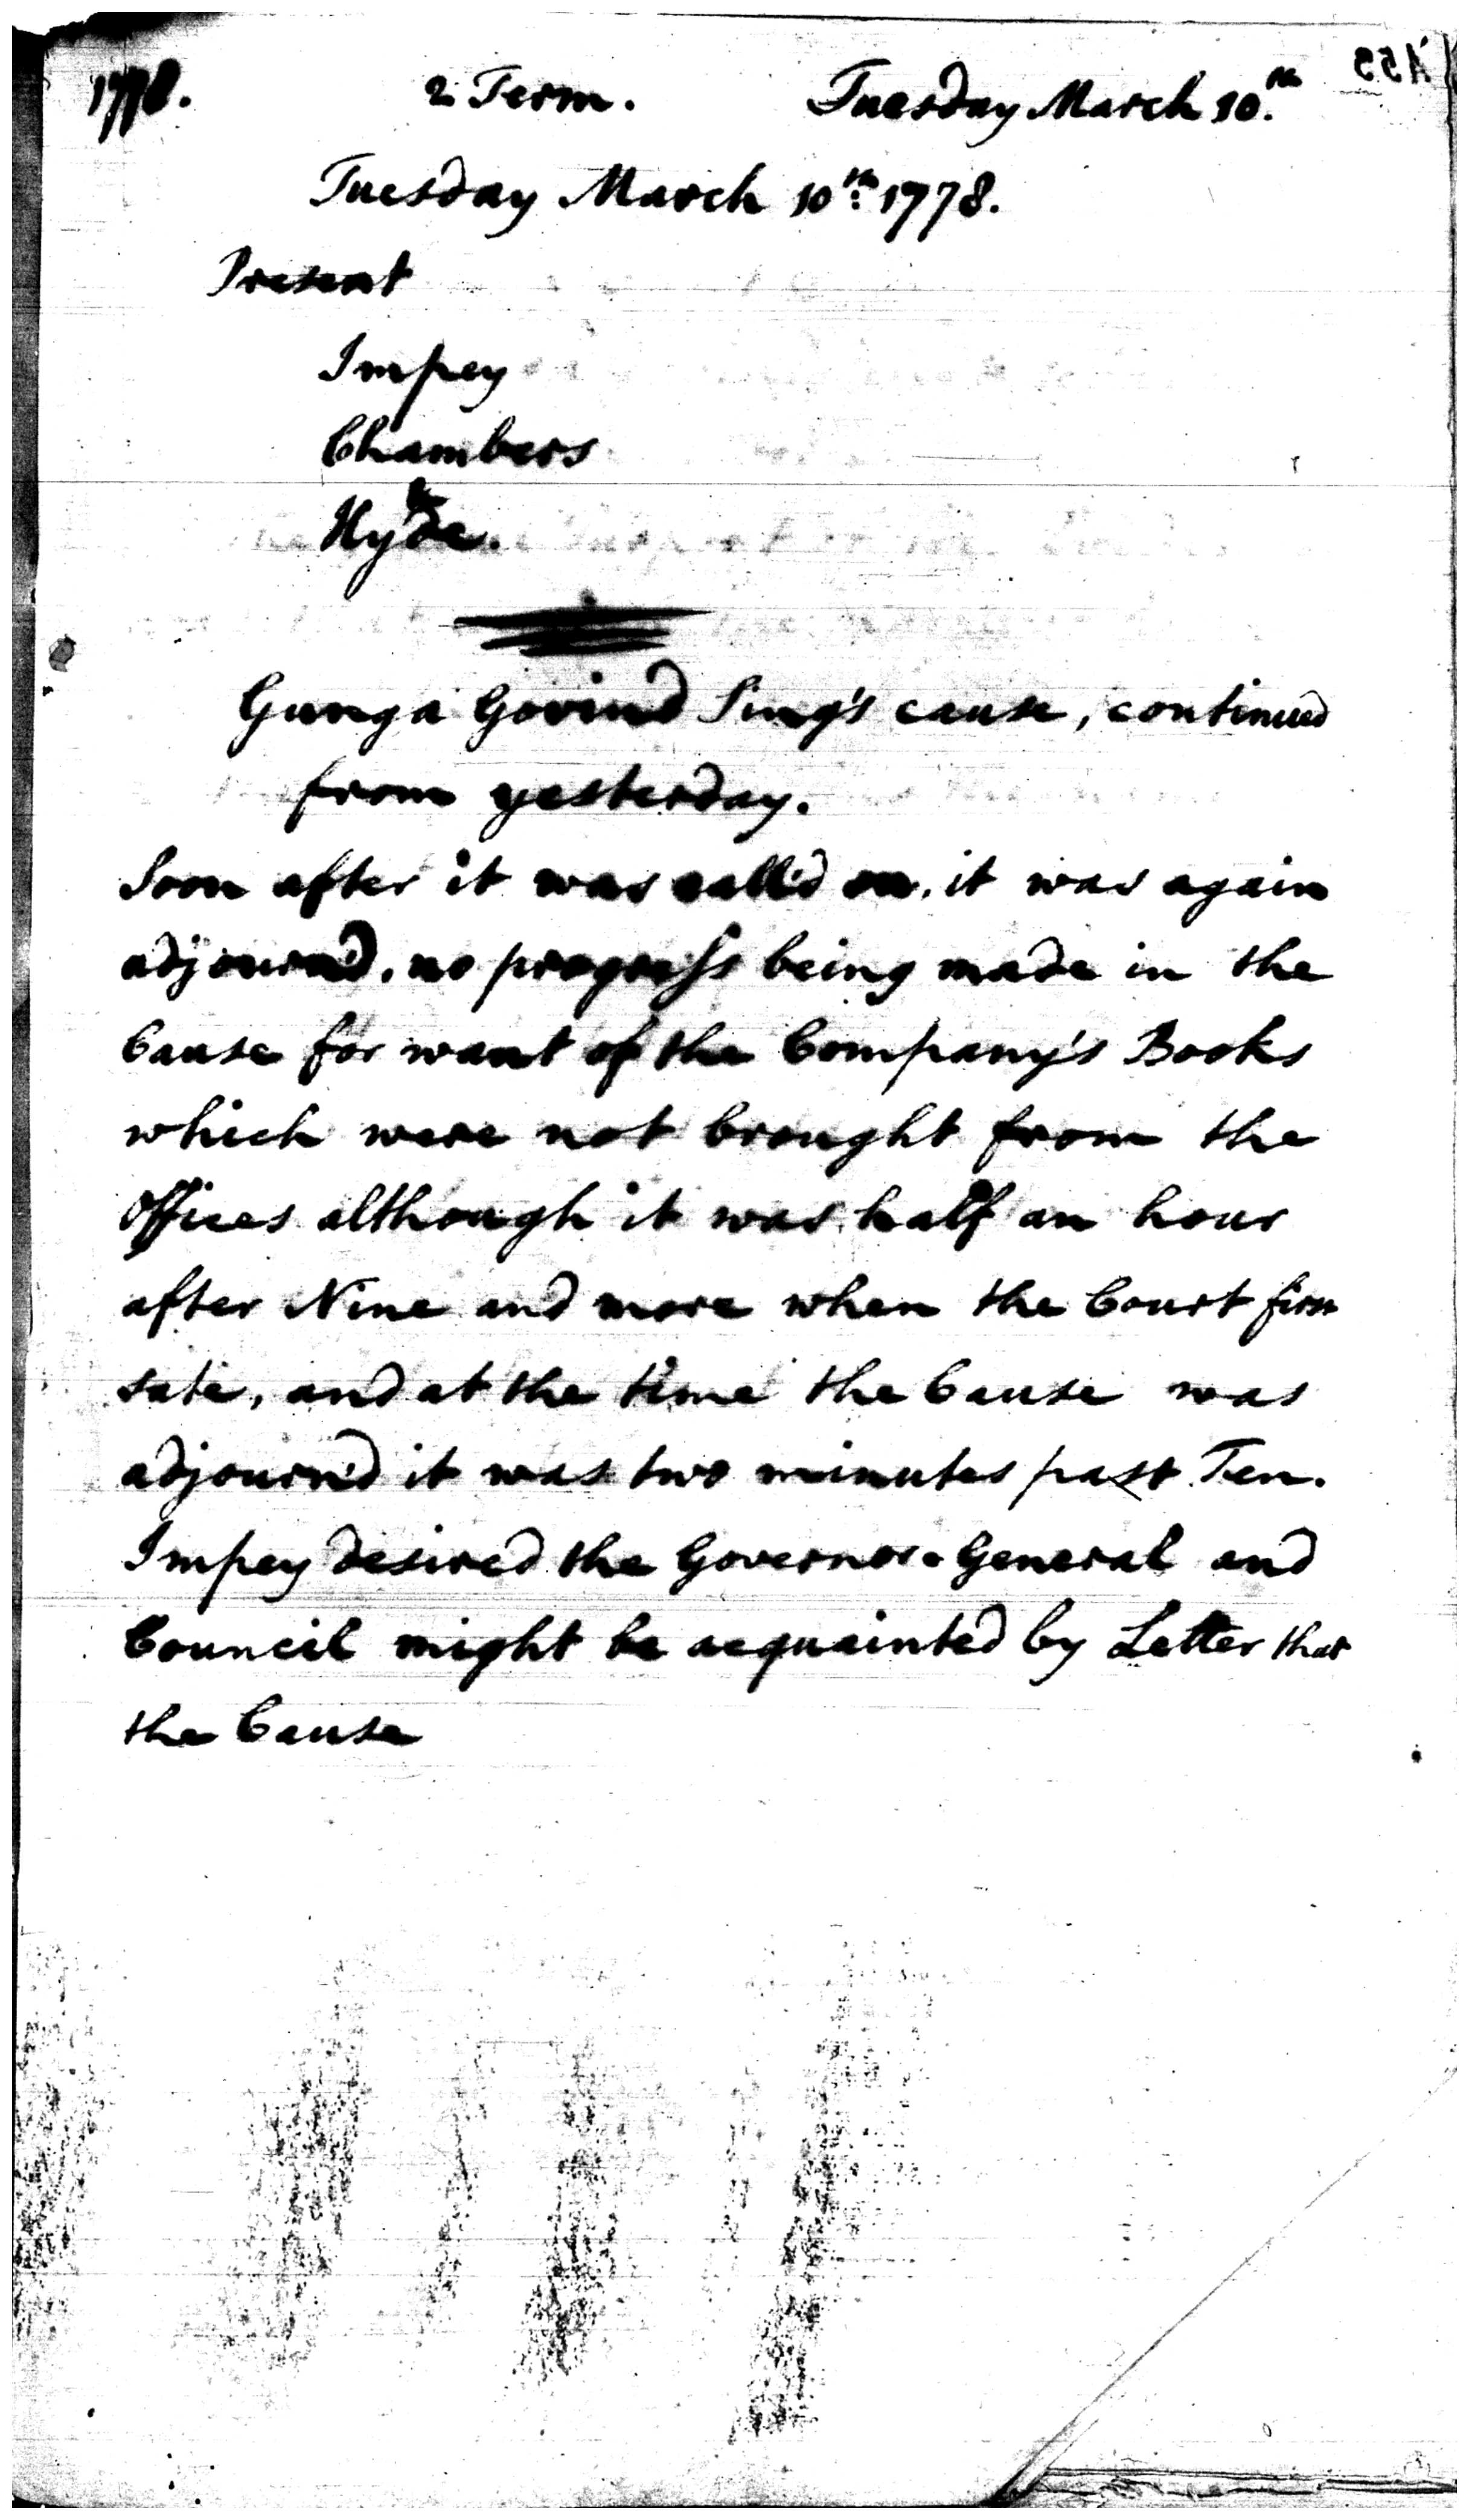 1778. 2 Term. Tuesday March 10.th
Tuesday March 10.th 1778.
Present
Impey
Chambers
&
Hyde.
Gunga Govind Sing's cause, continued
from yesterday.
Soon after it was call'd on, it was again
adjourn'd, no progress being made in the
Cause for want of the Company's Books
which were not brought from the
Offices although it was half an hour
after Nine and more when the Court first
sate, and at the time the Cause was
adjourn'd it was two minutes past Ten.
Impey desired the Governor-General and
Council might be acquainted by Letter that
the Cause